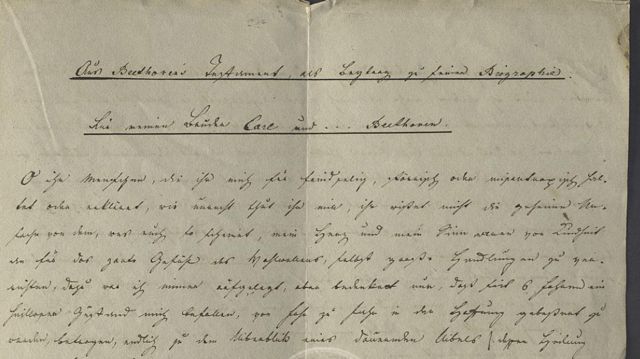 Aus Beethoven's Testament, als Beytrag zu seiner Biographie.
An meinen Bruder Carl und ... Beethoven.
O ihr Menschen, die ihr mich für feindselig, störrisch oder misantropisch hal-
tet oder erkläret, wie unrecht thut ihr mir, ihr wißet nicht die geheime Ur-
sache von dem, was euch so scheinet, mein Herz und mein Sinn waren von Kindheit
an für das zarte Gefühl des Wohlwollens, selbst große Handlungen zu ver-
richten, dazu war ich immer aufgelegt, aber bedenket nun, daß seit 6 Jahren ein
heilloser Zustand mich befallen, von Jahr zu Jahr in der Hoffnung gebeßert zu
werden, betrogen, endlich zu dem Überblick eines dauernden Übels (deßen Heilung